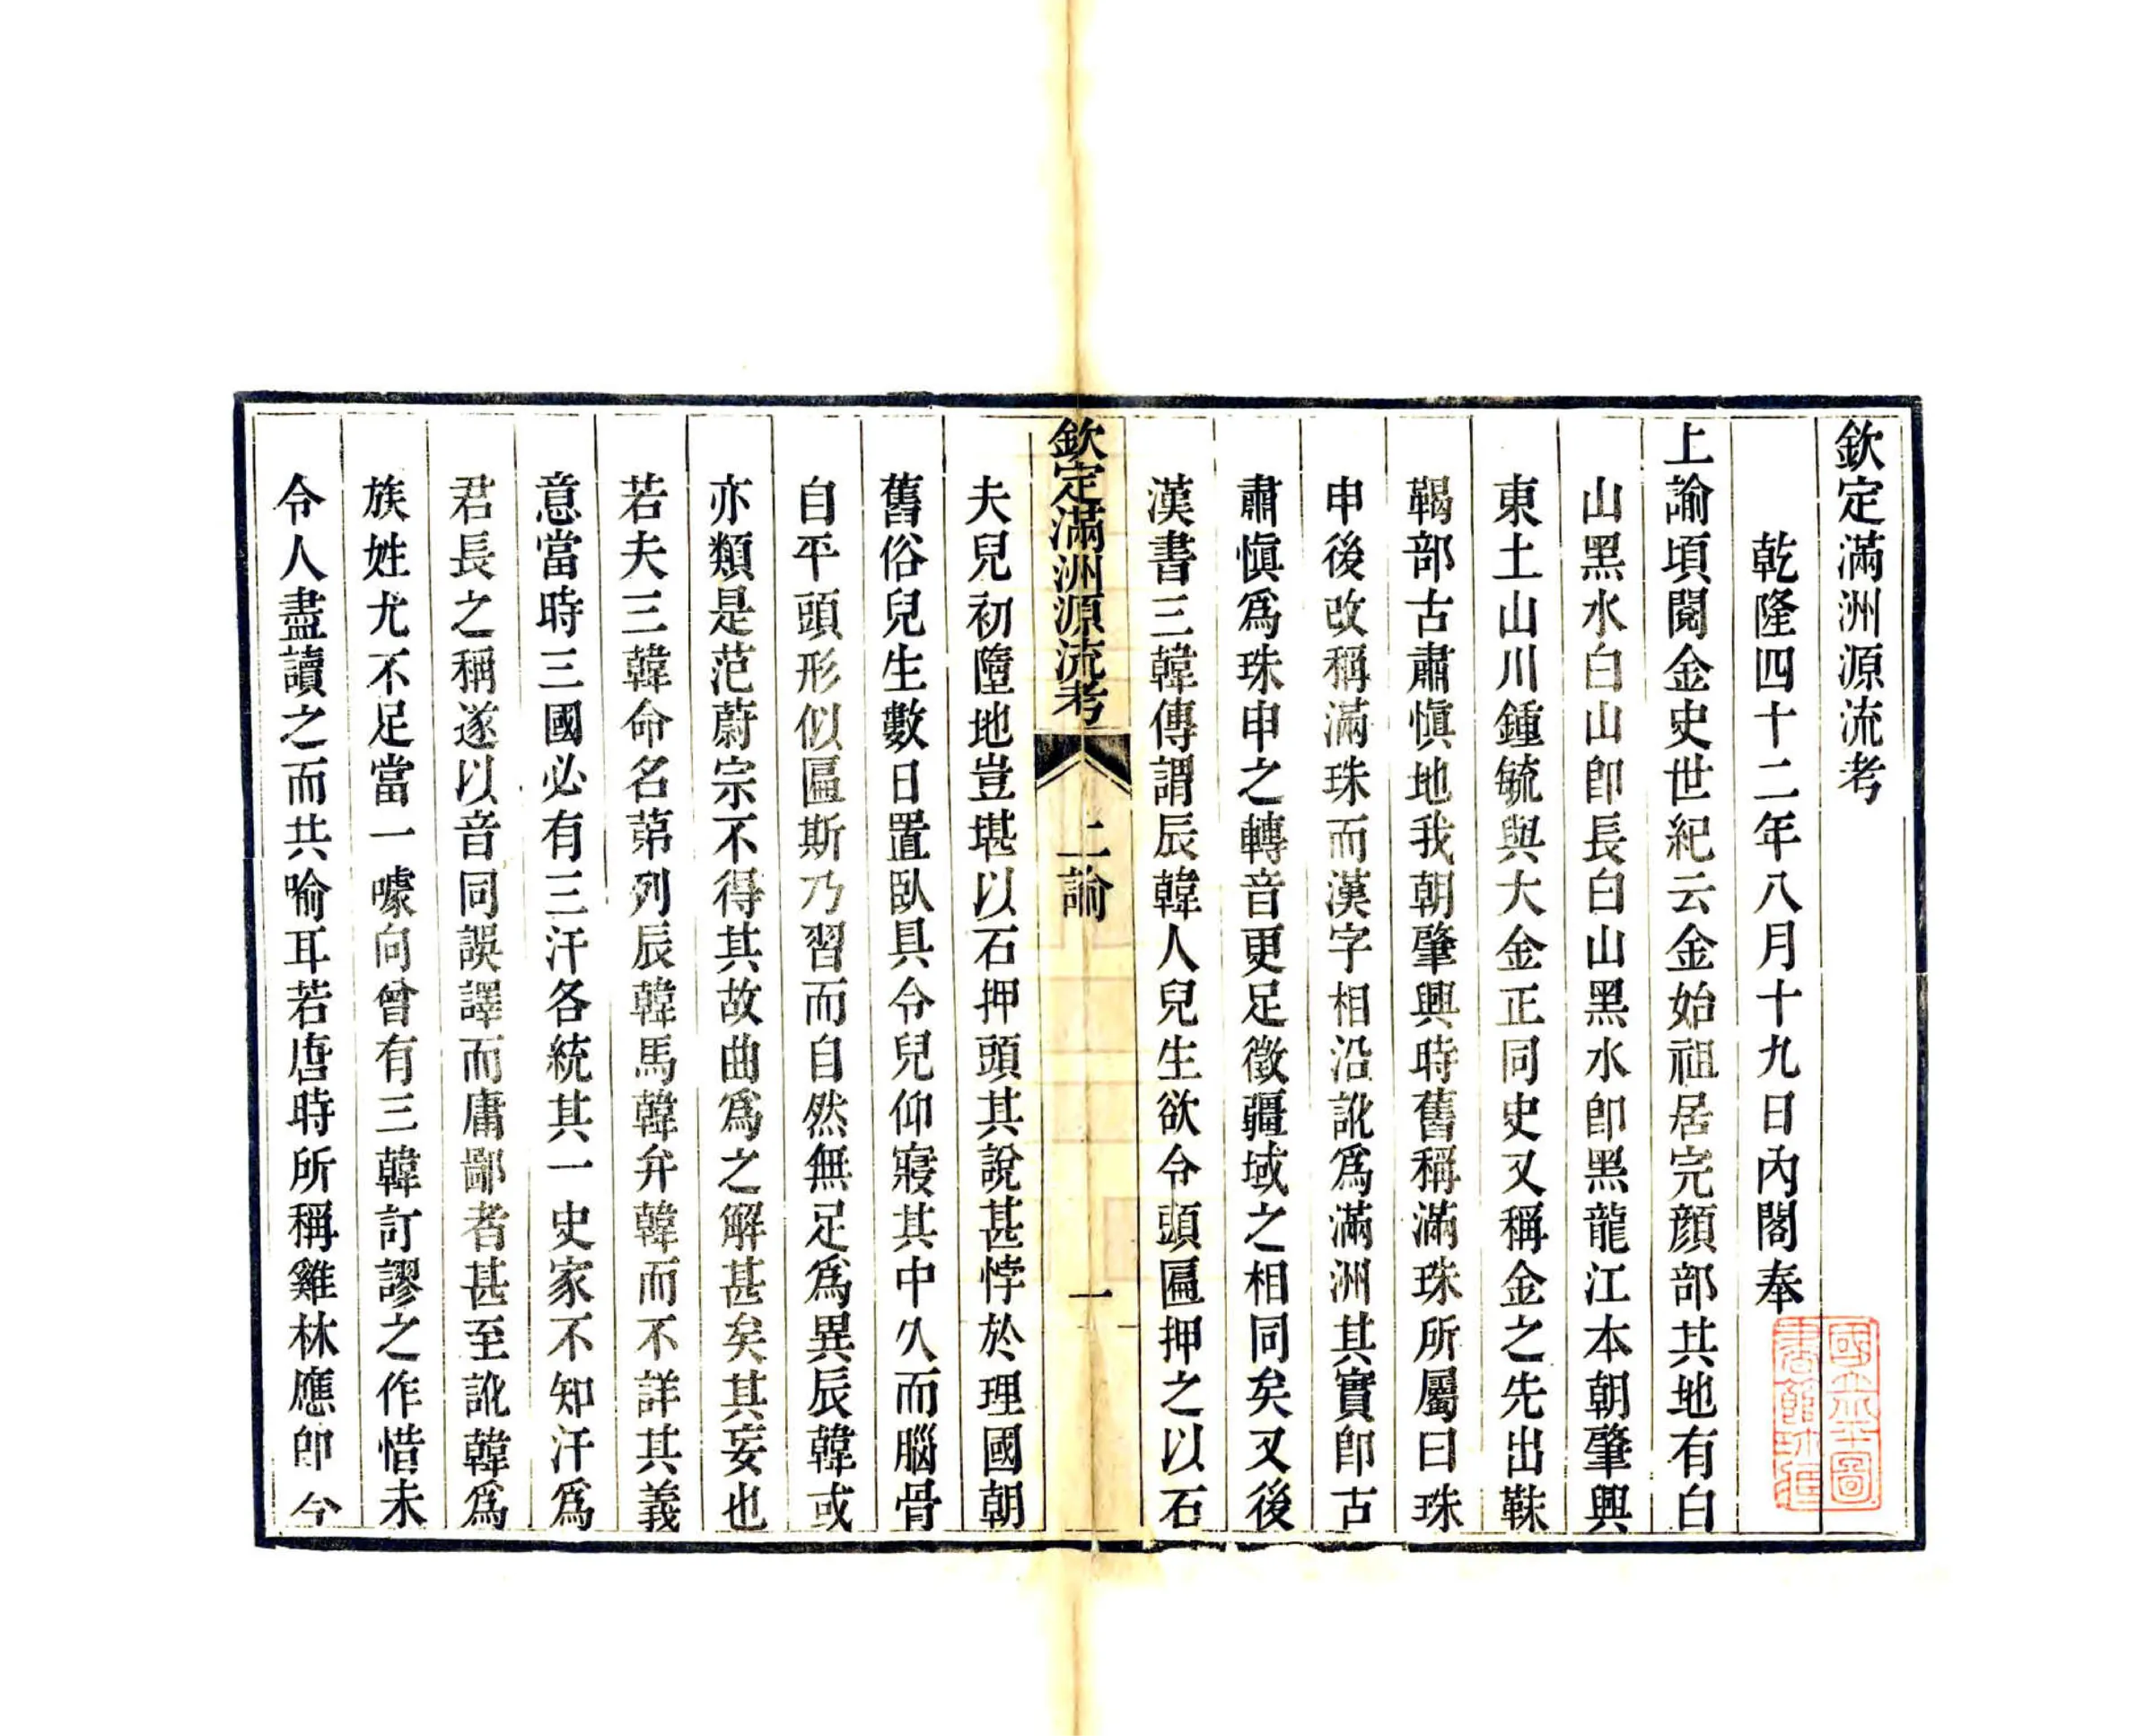 欽定滿洲源流考
乾隆四十二年八月十九日內閣奉
上諭頃閱金史世紀云金始祖居完顏部其地有白
山黑水白山卽長白山黑水卽黑龍江本朝肇興
東土山川鍾毓與大金正同史又稱金之先出靺
鞨部古肅愼地我朝肇興時舊稱滿珠所屬曰珠
申後改稱滿珠而漢字相沿訛爲滿洲其實卽古
肅愼爲珠申之轉音更足徵疆域之相同矣又後
漢書三韓傳謂辰韓人兒生欲令頭匾押之以石
欽定滿洲源流考 上諭 一
夫兒初墮地豈堪以石押頭其說甚悖於理國朝
舊俗兒生數日置臥具令兒仰寢其中久而腦骨
自平頭形似匾斯乃習而自然無足爲異辰韓或
亦類是范蔚宗不得其故曲爲之解甚矣其妄也
若夫三韓命名第列辰韓馬韓弁韓而不詳其義
意當時三國必有三汗各統其一史家不知汗爲
君長之稱遂以音同誤譯而庸鄙者甚至訛韓爲
族姓尤不足當一噱向曾有三韓訂謬之作惜未
令人盡讀之而共喻耳若唐時所稱雞林應卽今
國立北平圖
書館珍藏